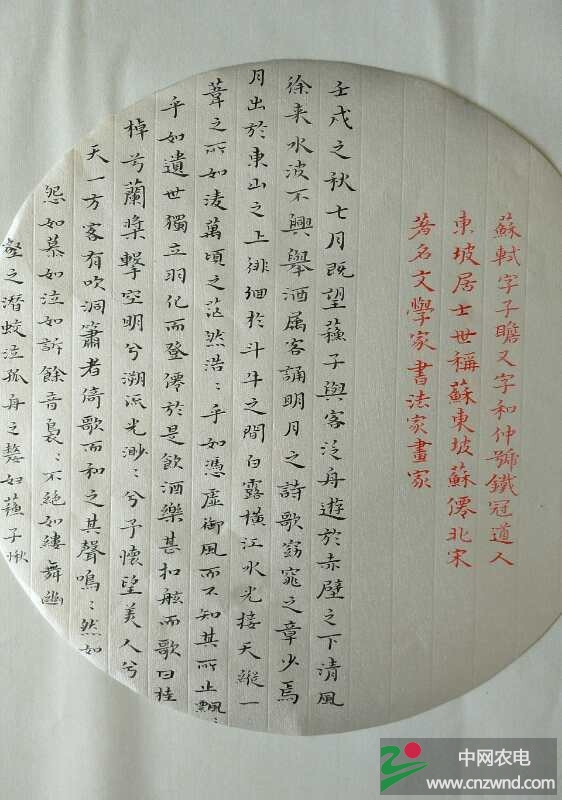 蘇軾字子瞻又字和仲號鐵冠道人
東坡居士世稱蘇東坡蘇僊北宋
著名文學家書法家畫家
壬戌之秋七月既望蘓子與客泛舟遊於赤壁之下清風
徐来水波不興舉酒属客誦明月之詩歌窈窕之章少焉
月出於東山之上徘徊於斗牛之間白露橫江水光接天縱一
葦之所如淩萬頃之茫然浩：乎如馮虛御風而不知其所止飄：
乎如遺世獨立羽化而登僊於是飲酒樂甚扣舷而歌曰桂
棹兮蘭槳擊空明兮溯流光渺：兮予懷望美人兮
天一方客有吹洞簫者倚歌而和之其聲鳴：然如
怨如慕如泣如訴餘音裊：不絕如縷舞幽
壑之潛蛟泣孤舟之嫠婦蘓子愀
中网农电
www.cnzwnd.com